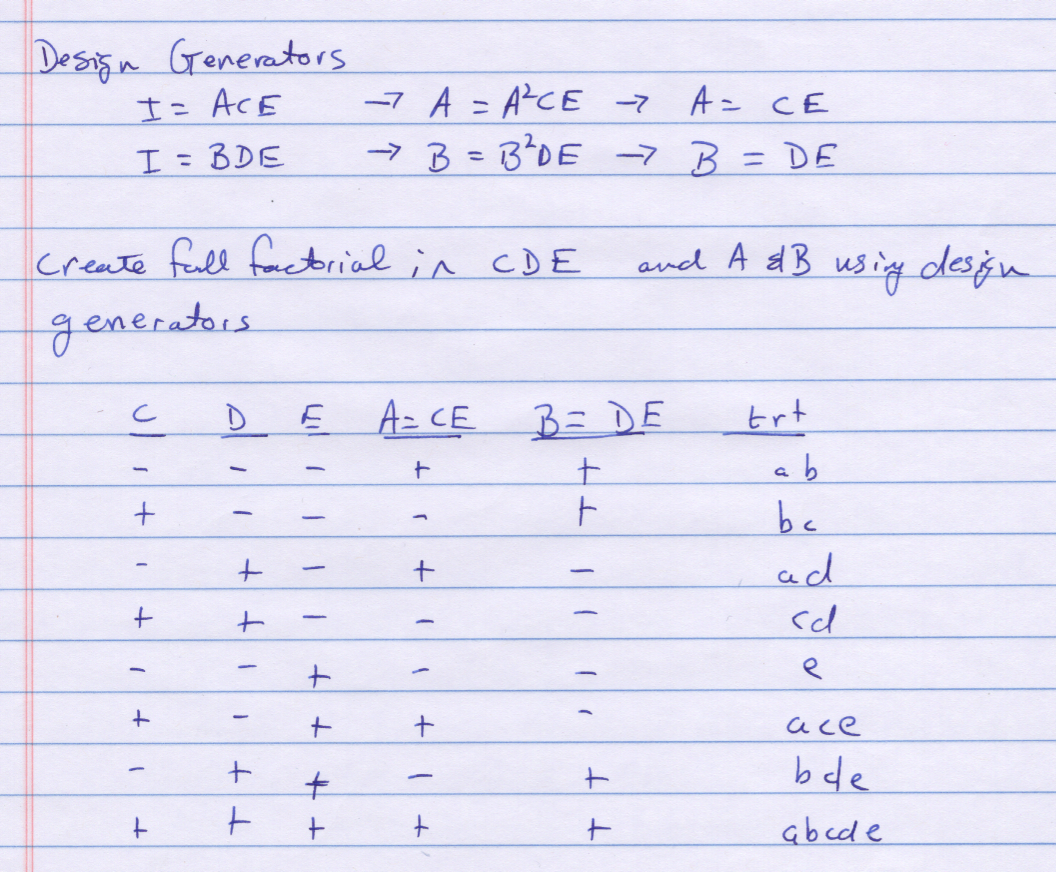 Design Generators
I = ACE → A = A²CE → A = CE
I = BDE → B = B²DE → B = DE
Create full factorial in CDE and A & B using design
generators
C D E A=CE B=DE trt
- - - + + ab
+ - - - + bc
- + - + - ad
+ + - - - cd
- - + - - e
+ - + + - ace
- + + - + bde
+ + + + + abcde